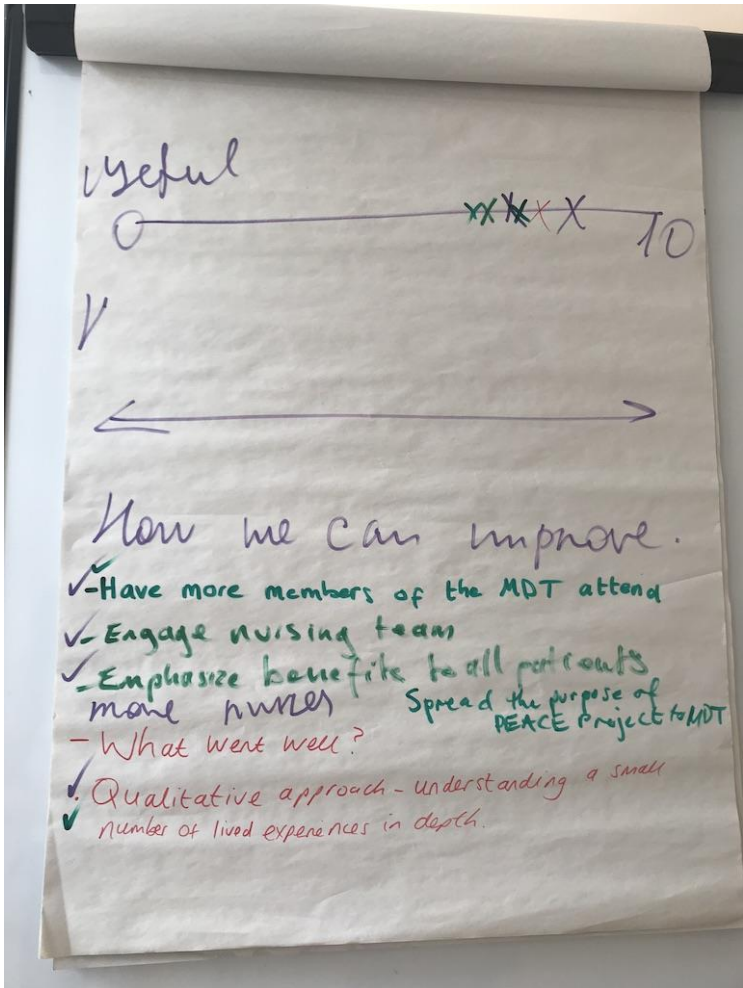 Useful
0 10
V
How we can improve.
-Have more members of the MDT attend
- Engage nursing team
- Emphasize benefits to all patients
more nurses
Spread the purpose of
PEACE Project to MDT
- What went well?
. Qualitative approach - understanding a small
number of lived experiences in depth.